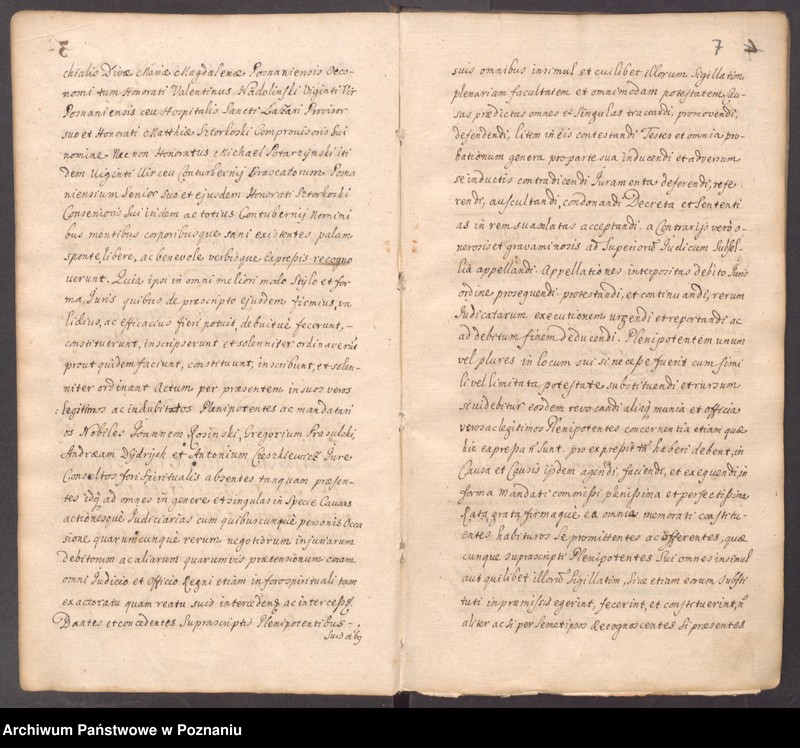 3
chialis Divæ Mariæ Magdalenæ Posnaniensis Oeco-
nomi tum Honorati Valentinus Nadolinski Viginti Vir
Posnaniensis ceu Hospitalis Sancti Lazari Provisor
suo et Honorati Matthiæ Sztorkoski Comprovisoris Sui
nomine Nec non Honoratus Michael Potarzynski iti
dem Viginti Vir ceu Conturbernij Braseatorum Posna
niensium Senior Suo et ejusdem Honorati Sztorkoski
Consenioris Sui itidem ac totius Contubernij Nomini
bus mentibus corporibusque sani existentes, palam
sponte, libere, ac benevole verbisque Expressis recogno
verunt. Quia ipsi in omni meliori modo Stylo et for
ma Juris quibus de præscripto ejusdem firmius, va
lidius, ac efficacius fieri potuit, debuitvè fecerunt, -
constituerunt, inscripserunt et solenniter ordinaverūt
prout quidem faciunt, constituunt, inscribunt, et solen-
niter ordinant Actum per præsentem in suos veros
legitimos ac indubitatos Plenipotentes ac mandatari
os Nobiles Joannem Rosinski, Gregorium Prasulski,
Andræam Dydrych et Antonium Czeszkiewicz Jure
Consultos fori Spiritualis absentes tanquam præsen-
tes idq̃ ad omnes in genere et singulas in Specie Causas
actionesquè Judiciarias cum quibuscunquè personis Occa
sione quarumcunquè rerum negotiorum injuriarum
debitorum ac aliarum quarumvis prætensionum coram
omni Judicio et Officio Regni etiam in foro spirituali tam
ex actoratu quam reatu suis intercedenq̃ ac intercessq̃.
Dantes et concedentes Suprascriptis Plenipotentibus -
Suis oibq
7
suis omnibus insimul et cuilibet illorum Sigillatim
plenariam facultatem et omnimodam potestatem Cau-
sas prædictas omnes et Singulas tractandi, promovendi,
defendendi, litem in eis contestandi Testes et omnia pro-
bationum genera pro parte sua inducendi et adversum
se inductis contradicendi Juramenta deferendi, refe
rendi, auscultandi, condonandi Decreta et Sententi
as in rem suam latas acceptandi. a Contrarijs verò o-
nerosis et gravaminosis ad Superiorū Judicum Subsel-
lia appellandi. Appellationes interpositas debito Juris
ordine prosequendi protestandi, et continuandi, rerum
Judicatarum executionem urgendi et reportandi ac
ad debitum finem deducendi. Plenipotentem unum
vel plures in locum sui si necesse fuerit cum simi
li vel limitata potestate substituendi et rursum
si videbitur eosdem revocandi aliaq̃ munia et officia
veros ac legitimos Plenipotentes concernentia etiam quæ
hic expressa ñ Sunt. pro expressis tñ haberi debent, in
Causa et Causis ijsdem agendi, faciendi, et exequendi, in
forma Mandati commissi plenissima et perfectissima
Rata, grata, firmaque ea omnia memorati constitu-
entes habituros Se promittentes ac offerentes, quæ
cunque suprascripti Plenipotentes Sui omnes insimul
aut quilibet illorū Sigillatim, Sive etiam eorum Substi
tuti in præmissis egerint, fecerint, et constituerint, ñ
aliter ac si per Semetipsos Recognoscentes Si præsentes
Archiwum Państwowe w Poznaniu